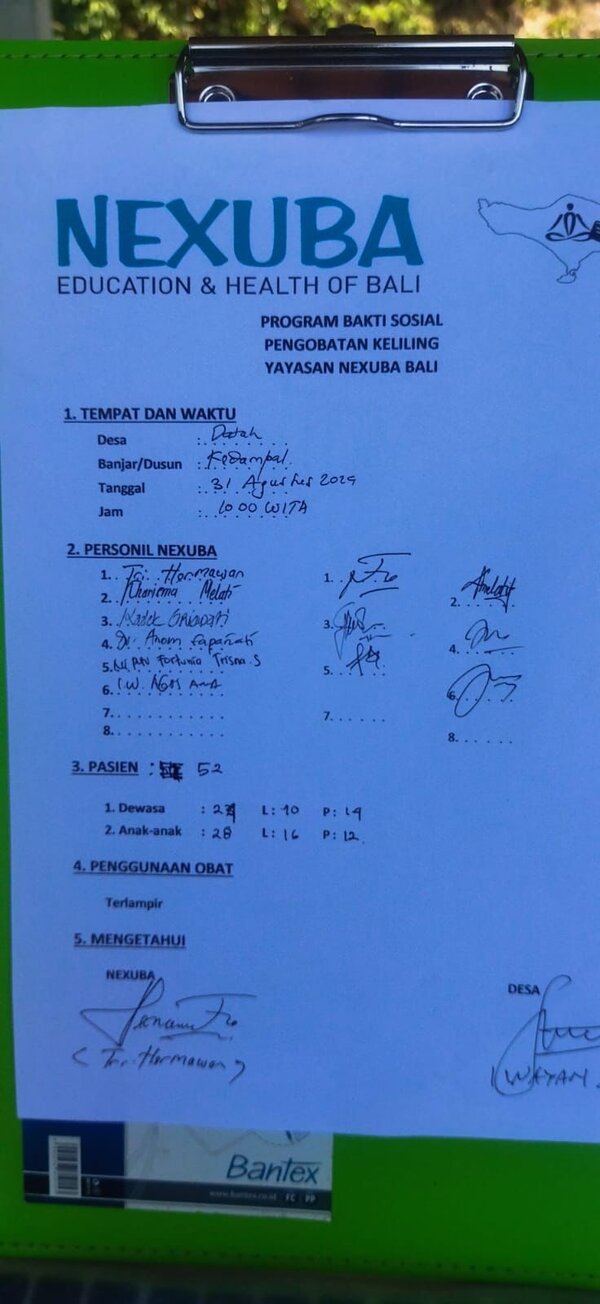 NEXUBA
EDUCATION & HEALTH OF BALI
PROGRAM BAKTI SOSIAL
PENGOBATAN KELILING
YAYASAN NEXUBA BALI
1. TEMPAT DAN WAKTU
Desa : Datah
Banjar/Dusun : Kedampal
Tanggal : 31 Agustus 2024
Jam : 10.00 WITA
2. PERSONIL NEXUBA
1. Tri Hermawan 1.
2. Kharisma Melati 2.
3. Kadek 3.
4. Dr. Anom 4.
5. Fortunia Trisna.S 5.
6. I.W. 6.
7. 7.
8. 8.
3. PASIEN : 52
1. Dewasa : 24 L: 10 P: 14
2. Anak-anak : 28 L: 16 P: 12
4. PENGGUNAAN OBAT
Terlampir
5. MENGETAHUI
NEXUBA
DESA
( Tri Hermawan )
I WAYAN
Bantex
www.bantex.co.id FC PP